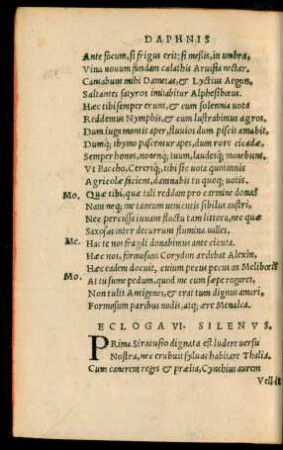 DAPHNIS
Ante focum, si frigus erit; si messis, in umbra,
Vina nouum fundam calathis Aruisia nectar.
Cantabunt mihi Damœtas, & Lyctius Aegon,
Saltantes satyros imitabitur Alphesibœus.
Hæc tibi semper erunt, & cum solennia uota
Reddemus Nymphis, & cum lustrabimus agros.
Dum iuga montis aper, fluuios dum piscis amabit,
Dumq; thymo pascentur apes, dum rore cicadæ,
Semper honos, nomenq; tuum, laudesq; manebunt.
Vt Baccho, Cereriq; tibi sic uota quotannis
Agricolæ facient, damnabis tu quoq; uotis.
Mo. Quæ tibi, quæ tali reddam pro carmine dona?
Nam neq; me tantum uenientis sibilus austri,
Nec percussa iuuant fluctu tam littora, nec quæ
Saxosas inter decurrunt flumina ualles.
Me. Hac te nos fragili donabimus ante cicuta.
Hæc nos, formosum Corydon ardebat Alexin,
Hæc eadem docuit, cuium pecus? an Melibœi?
Mo. At tu sume pedum, quod me cum sæpe rogaret,
Non tulit Antigenes, & erat tum dignus amari,
Formosum paribus nodis, atq; ære Menalca.
ECLOGA VI. SILENVS.
PRima Siracusio dignata est ludere uersu
Nostra, nec erubuit syluas habitare Thalia.
Cum canerem reges & prælia, Cynthius aurem
Vellit